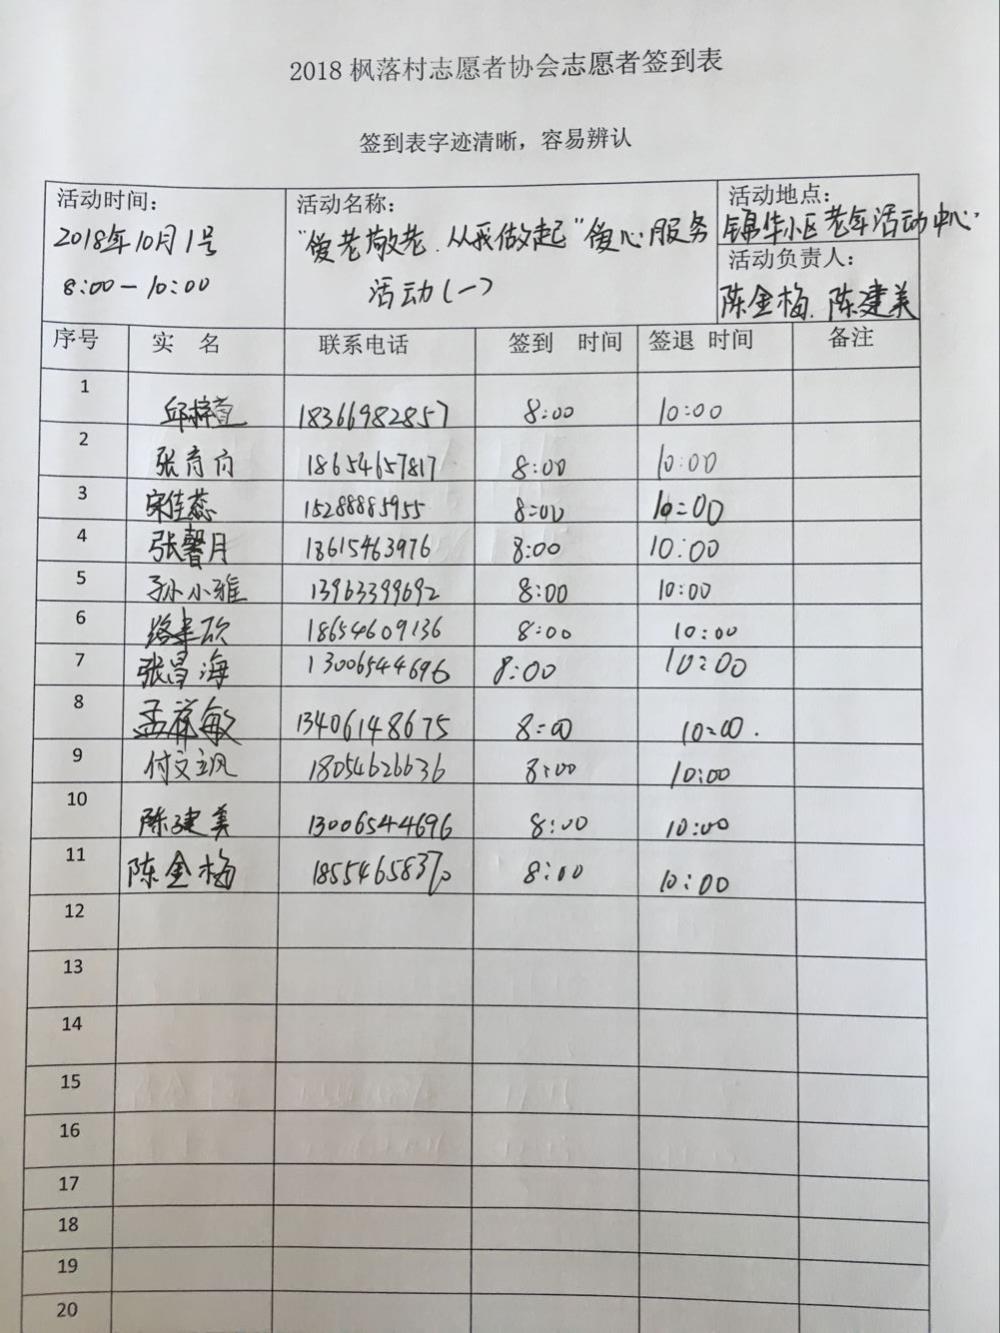 2018 枫落村志愿者协会志愿者签到表
签到表字迹清晰，容易辨认
活动时间：
2018年10月1号
8:00-10:00
活动名称：
“爱老敬老.从我做起”爱心服务
活动(一)
活动地点：
锦华小区老年活动中心.
活动负责人：
陈金梅.陈建美
序号 实 名 联系电话 签到 时间 签退 时间 备注
1 邱梓萱 18366982857 8:00 10:00
2 张育向 18654657817 8:00 10:00
3 宋佳蕊 15288885955 8:00 10:00
4 张馨月 18615463976 8:00 10:00
5 孙小雅 13963399692 8:00 10:00
6 18654609136 8:00 10:00
7 张昌海 13006544696 8:00 10:00
8 孟祥敏 13406148675 8:00 10:00.
9 付文飒 18054626636 8:00 10:00
10 陈建美 13006544696 8:00 10:00
11 陈金梅 18554658370 8:00 10:00
12
13
14
15
16
17
18
19
20